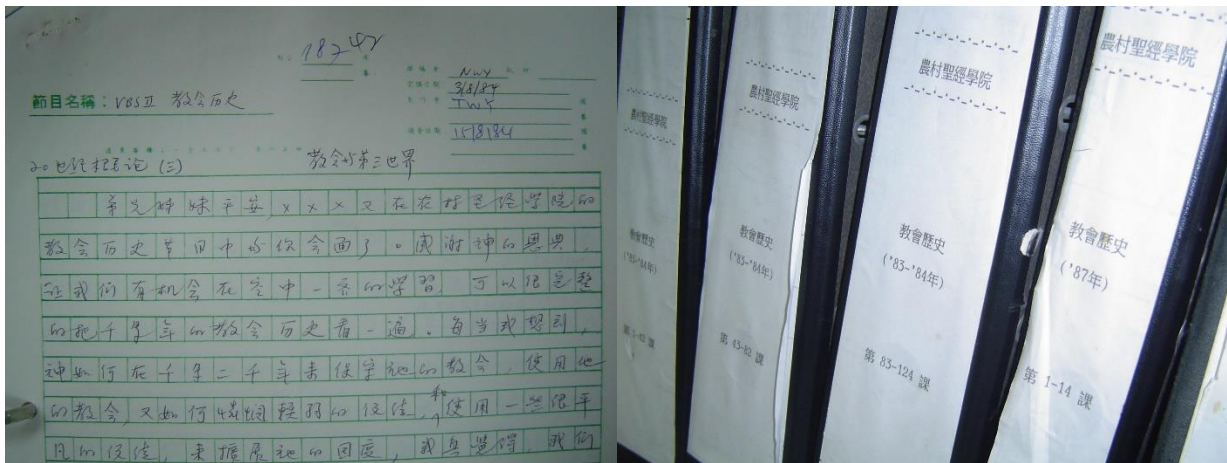 187 42
NWY
3/8/84
TWY
15/8/84
節目名稱：VBS II 教会历史
20世纪 论 (三) 教会与第三世界
弟兄姊妹平安，××××又在农村圣经学院的
教会历史节目中与你会面了。感谢神的恩典，
我们有机会在空中一齐的学習，可以很完整
的把千多年的教会历史看一遍。每当我想到，
神如何在千多二千年来保守祂的教会，使用他
的教会，又如何 軟弱的信徒，和使用一些很平
凡的信徒，来擴展祂的国度，我 覺得，我们
農村聖經學院
教會歷史
('83-'84年)
第 1-42 課
農村聖經學院
教會歷史
('83-'84年)
第 43-82 課
農村聖經學院
教會歷史
('83-'84年)
第 83-124 課
農村聖經學院
教會歷史
('87年)
第 1-14 課